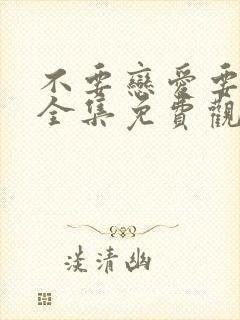 不要戀愛要
全集免費觀
淡清幽